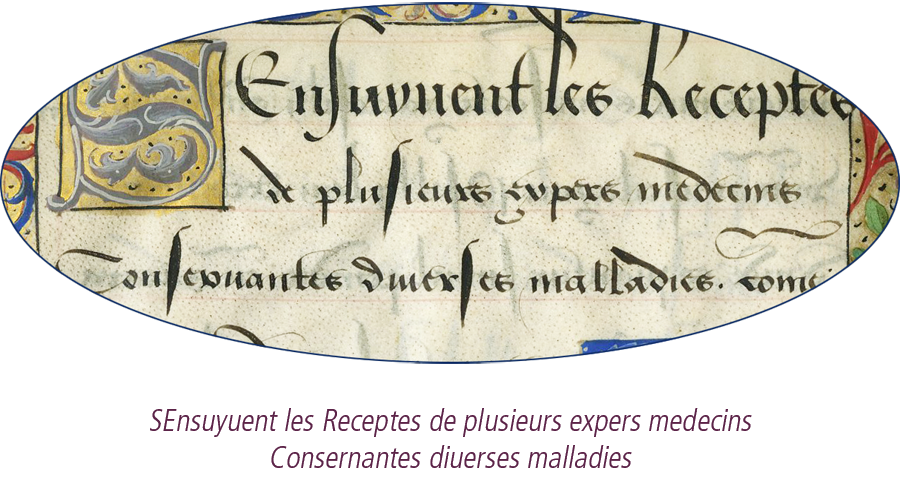 SEnsuyuent les Receptes
de plusieurs expers medecins
Consernantes diuerses malladies. come
SEnsuyuent les Receptes de plusieurs expers medecins
Consernantes diuerses malladies